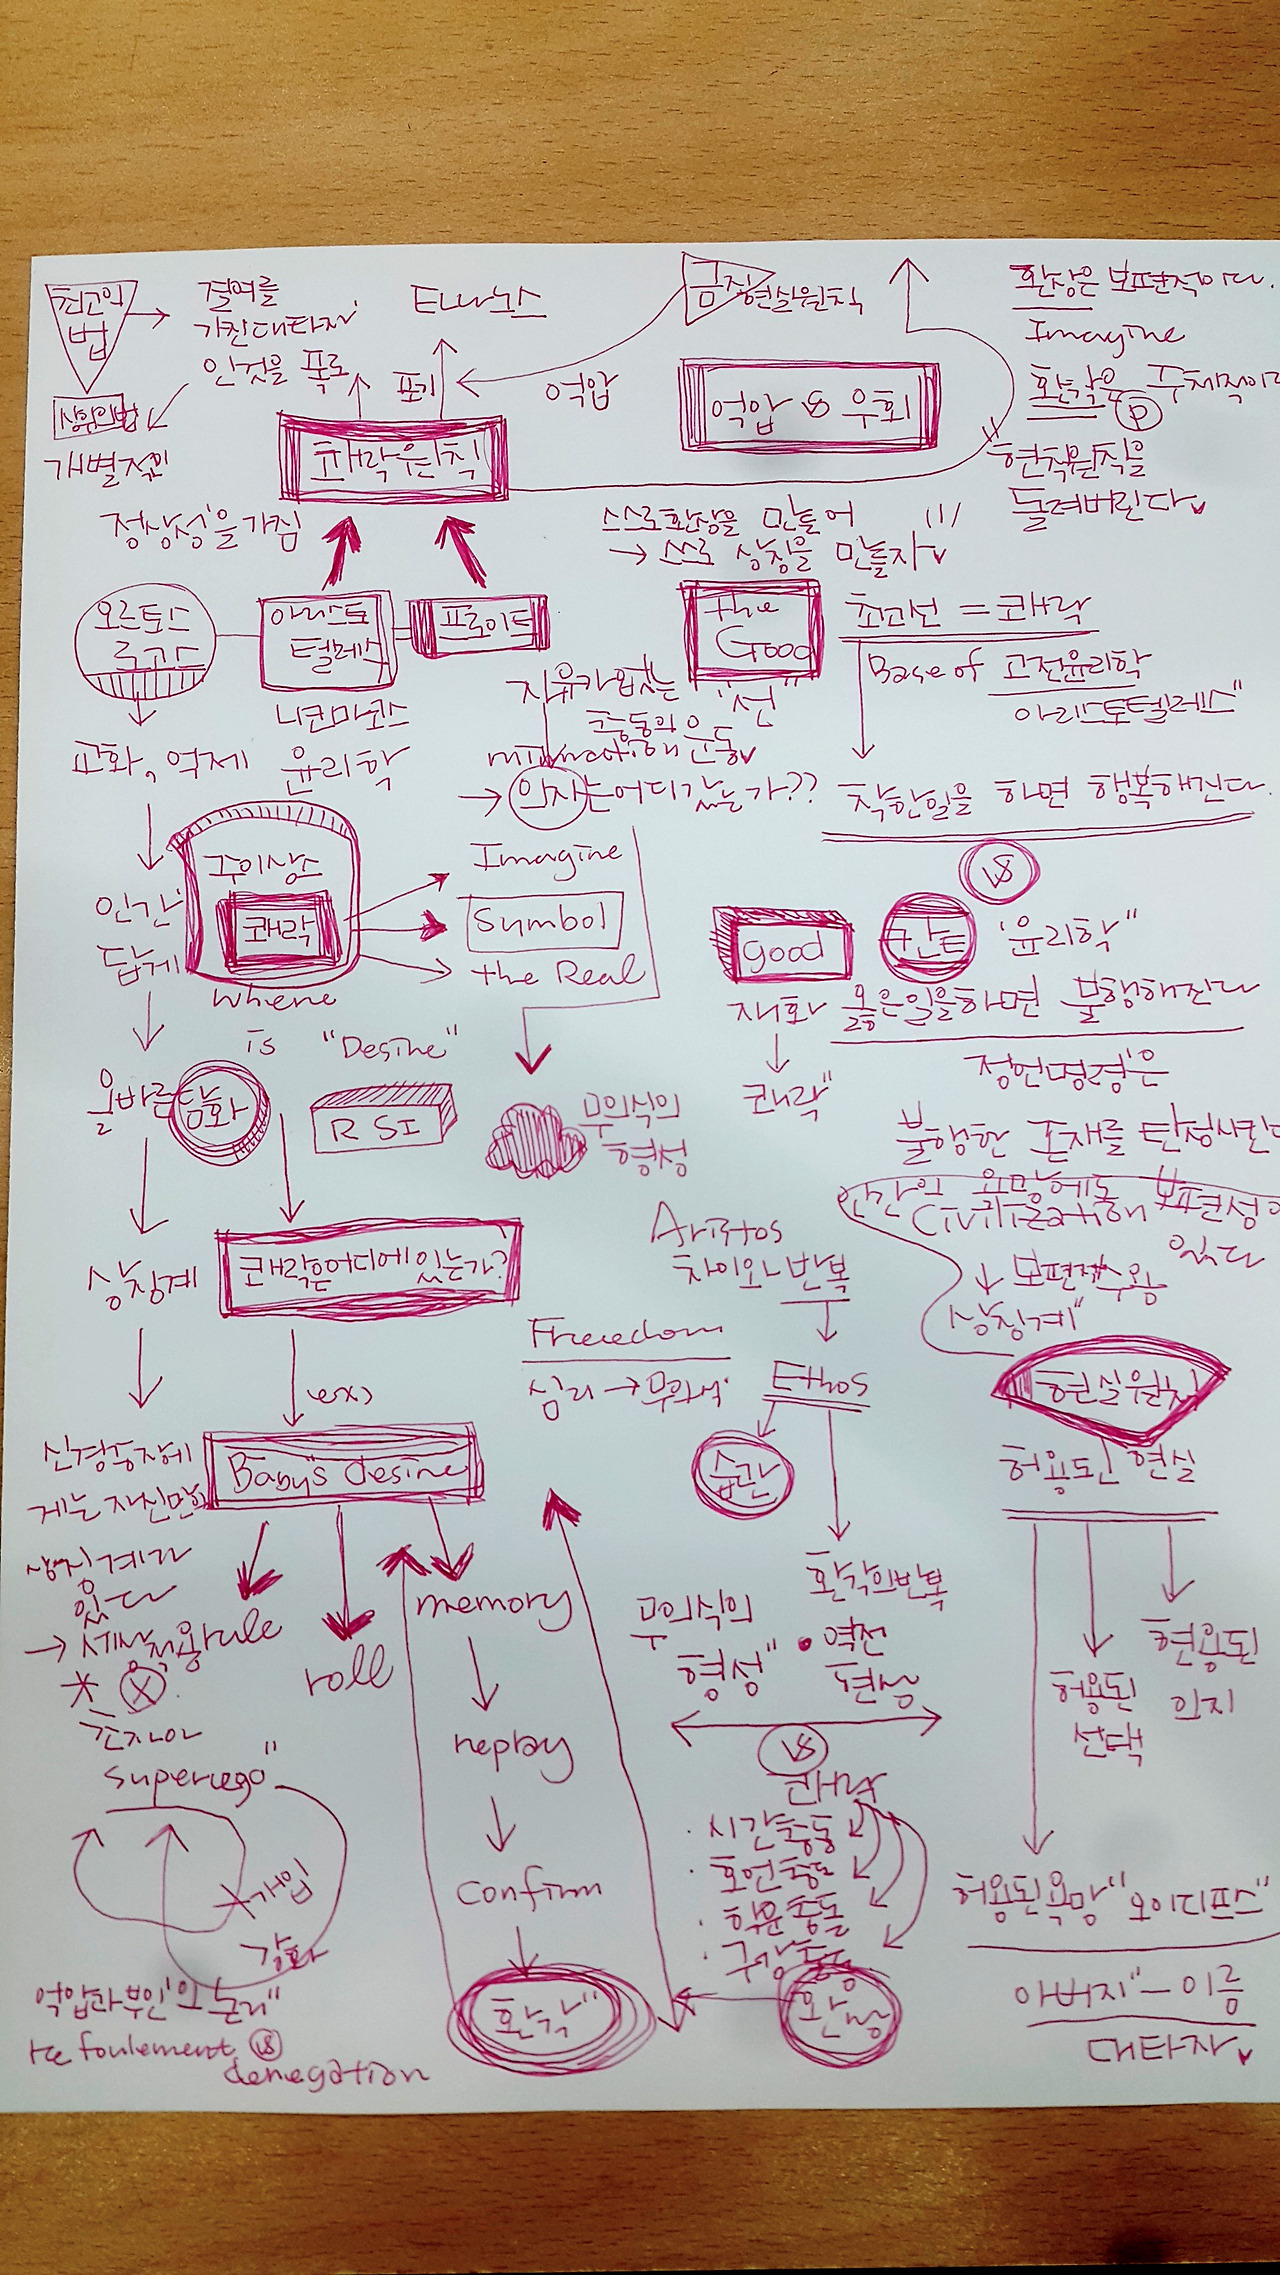 최고의
법
결여를
가진대타자
인것을 폭로
상험의법
개별적인
타나노스
포기
쾌락원칙
억압
금지
현실원칙
억압 vs 우회
환상은 보편적이다.
Imagine
환락은 주체적이
현실원칙을
돌려버린다
정상성'을가짐
스스로환상을 만들어
→ 스스로 상징을 만들자
오르토스
로고스
아리스토
텔레스
프로이트
니코마코스
윤리학
The
Good
"선"
최고선 = 쾌락
Base of 고전윤리학
아리스토텔레스"
자유가없는
충동의
운동
→ 의지는어디있는가??
착한일을 하면 행복해진다.
교화, 억제
인간
답게
주이상스
쾌락
where
is "Desire"
Imagine
Symbol
the Real
RSI
무의식의
형성
vs
good
재화
쾌락"
칸트 '윤리학"
옳은일을하면 불행해진다
정언명령'은
불행한 존재를 탄생시킨다
인간의 욕망에도 보편성이
Civilization
있다
보편적수용
상징계"
올바른
담화
상징계
쾌락은어디에있는가?
ex)
Baby's desire
신경증자에
게는 자신만의
상징계가
있다
→ 세상적용rule
* ⓧ
초자아
superego"
개입
강화
억압과부인'의 논리"
refoulement vs
denegation
roll
memory
replay
Confirm
환각"
Aristos
차이와반복
Freedom
심리 →
Ethos
습관
환각의반복
무의식의
형성"
• 역전
현상
vs
쾌락
· 시간충동
· 호언충동
· 항문충동
· 구강충동
환상
현실원칙
허용된 현실
허용된
선택
현용된
의지
허용된욕망"오이디프스"
아버지"―이름
대타자